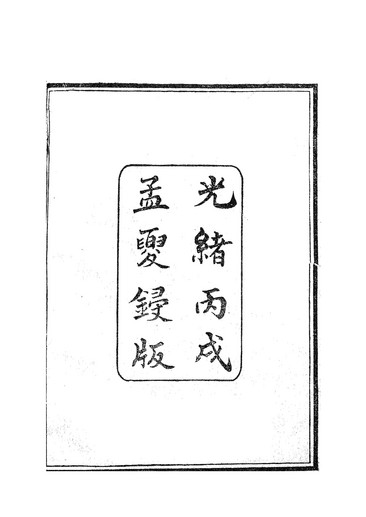 光緒丙戌
孟夏鋟版